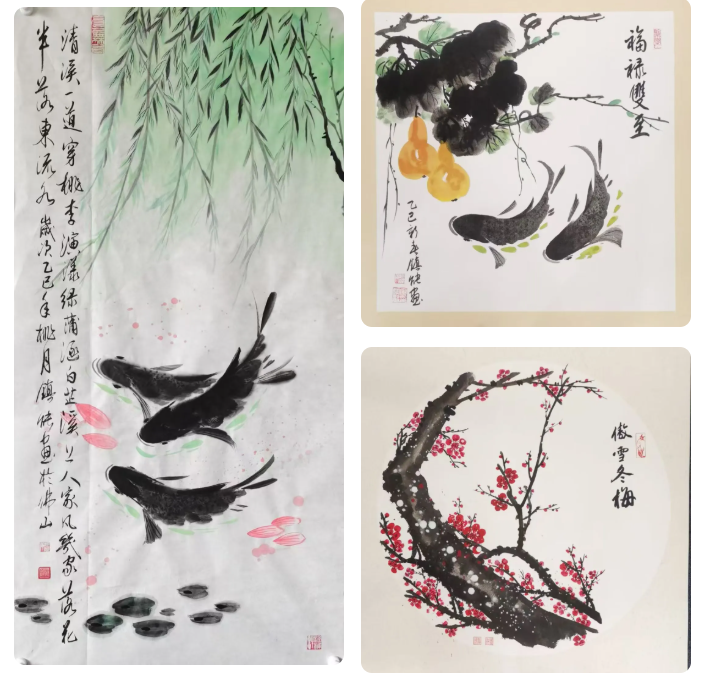 清溪一道穿桃李演漾绿蒲涵白芷溪上人家凡幾家落花
半落東流水歲次乙巳年桃月鎮畫於佛山
福禄雙至
乙巳新春鎮畫
傲雪冬梅